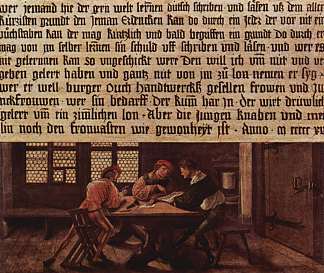 wer jemand hie der gern welt lernen dütsch schriben und läsen uß dem aller
kürtzisten grundt den jeman erdencken kan do durch ein jeder der vor nit ein
bůchstaben kan der mag kürtzlich und bald begriffen ein grundt do durch er
mag von im selber lernen sin schuld uff schriben und läsen · und wer es
nit gelernen kan so ungeschickt were den will ich um nüt und ver
geben geleert haben und gantz nüt von im zů lon nemen er syg
wer er well burger ouch handtwercks gesellen frowen und ju
nckfrouwen wer sin bedarff der kum har in · der wirt drüwlich
geleert um ein zimlichen lon · aber die jungen knaben und meit
lin noch den fronvasten wie gewonheyt ist · anno · m cccc x